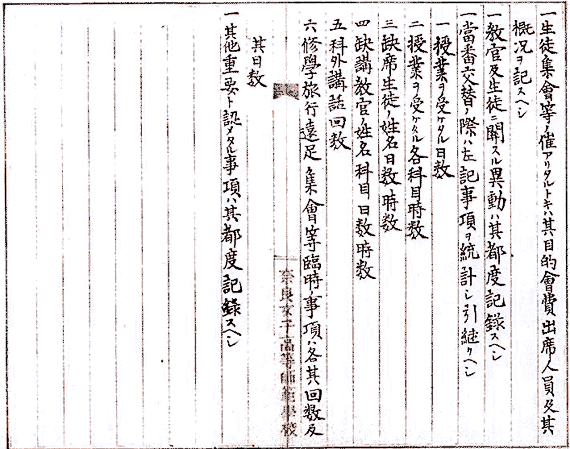 一生徒集會等ノ催アリタルトキハ其目的會費出席人員及其
概況ヲ記スヘシ
一教官及生徒ニ関スル異動ハ其都度記録スヘシ
一當番交替ノ際ハ左記事項ヲ統計シ引継クヘシ
一授業ヲ受ケタル日数
二授業ヲ受ケタル各科目時数
三缺席生徒ノ姓名日数時数
四缺講教官ノ姓名科目日数時数
五科外講話回数
六修學旅行遠足集會等臨時ノ事項ハ各其回数及
其日数
一其他重要ト認メタル事項ハ其都度記録スヘシ
奈良女子高等師範學校